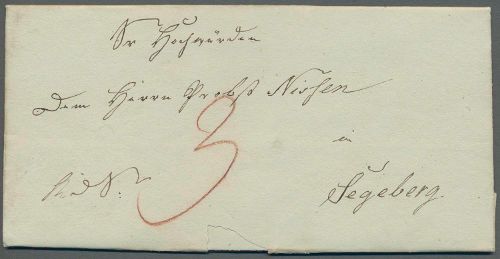 Sr Hochwürden
Dem Herrn Probst Nissen
in
Segeberg
3